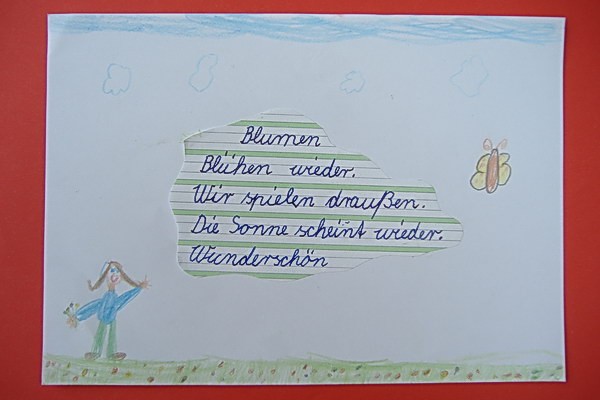 Blumen
Blühen wieder.
Wir spielen draußen.
Die Sonne scheint wieder.
Wunderschön